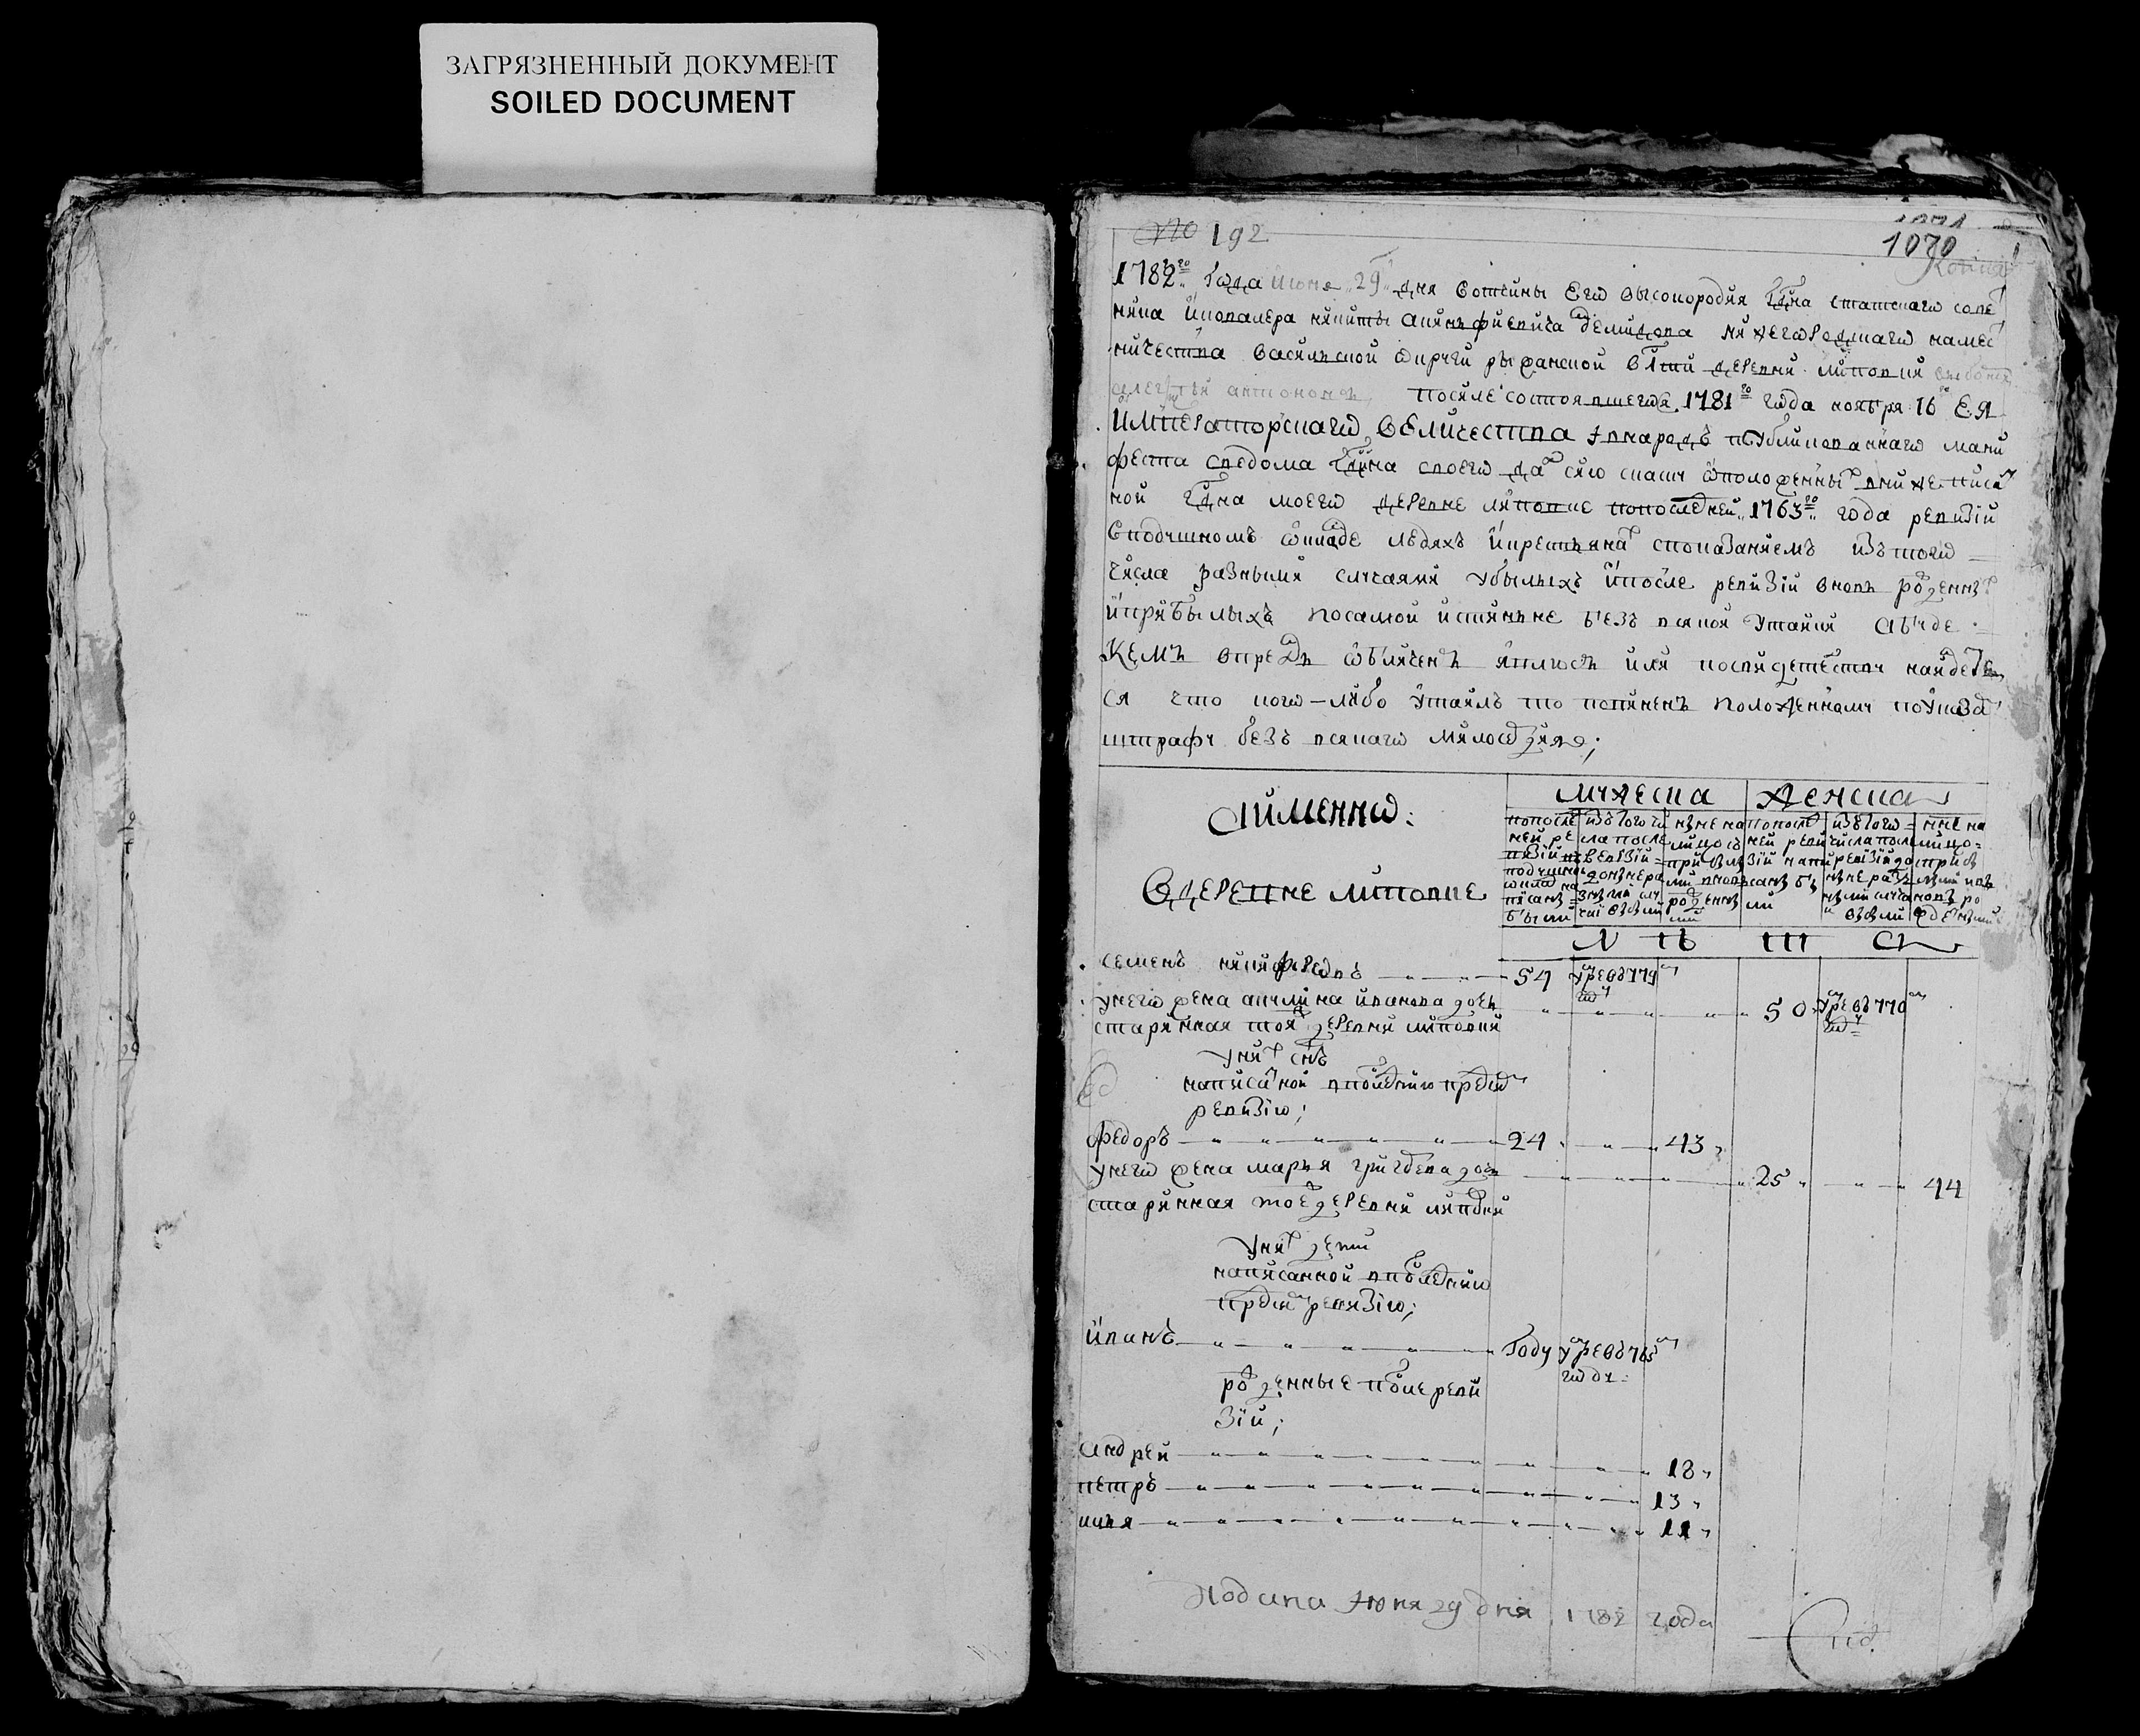 ЗАГРЯЗНЕННЫЙ ДОКУМЕНТ
SOILED DOCUMENT
№ 192
1070
Копия
1782го года июня 29 дня вотчины его высокородия гдна статскаго совет
ника и кавалера никиты акинфиевича демидова нижегородскаго намес
ничества васильской округи деревни липовки
антономъ после состоявшегося 1781го года ноября 16 Ея
Императорскаго величества в народъ публикованнаго мани
феста сведома гдна своего дал сию скаску о положенных в нижеписан
ной гдна моего деревне липовке по последней 1763го года ревизии
в подушномъ окладе людяхъ и крестьянах с показаниемъ изъ того
числа разными случаями убылыхъ и после ревизии вновь рожденных
и прибылыхъ по самой истинне безъ всякой утайки а буде
кемъ впредь обличенъ явлюсь или по свидетельству найдет
ся что кого-либо утаилъ то повиненъ положенному по указам
штрафу безъ всякаго милосердия;
а именно:
в деревне липовке
мужеска женска
по послед
ней ре
визии въ
подушном
окладе на
писаны
были
изъ того чи
сла после
ревизии
до ныне ра
зными слу
чаи выбыли
ныне на
лицо со
прибылы
ми и вновь
рожденны
ми
по послед
ней реви
зии напи
саны бы
ли
изъ того
числа после
ревизии до
ныне разны
ми случа
и выбыли
ныне на
лицо
с прибы
лыми и
вновь ро
жденными
л е т ы
семенъ никифоровъ 54 умре в 779м
году
у него жена акулина иванова дочь 50 умре в 770м
году
старинная той деревни липовки
у них сынъ
написанной в последнюю пред сим
ревизию;
федоръ 24 43
у него жена марья григорьева дочь 25 44
старинная той же деревни липовки
у них дети
написанной в последнюю
пред сим ревизию;
иванъ году умре в 765м
году
рожденные после реви
зии;
андрей 18
петръ 13
илья 11
Подана июня 29 дня 1782 года